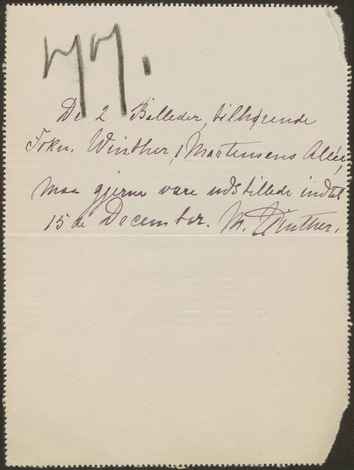 77.
De 2 Billeder, tilhørende
Frkn. Winther, 1 Mortensens Allé,
maa gjerne være udstillede indtil
15 de December. M. Winther.